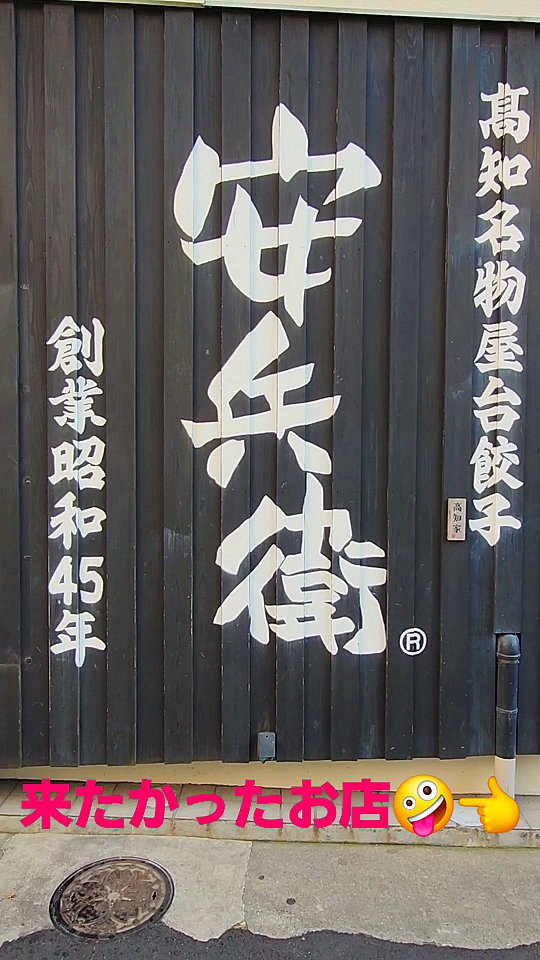 髙知名物屋台餃子
安兵衛
®
創業昭和45年
高知家
来たかったお店🤪👈